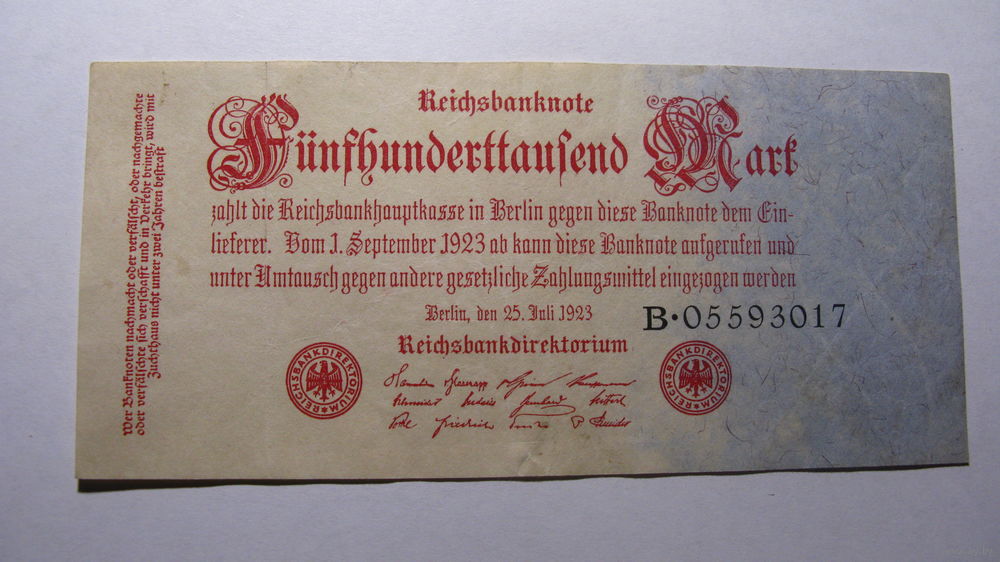 Reichsbanknote
Fünfhunderttausend Mark
zahlt die Reichsbankhauptkasse in Berlin gegen diese Banknote dem Ein-
lieferer. Vom 1. September 1923 ab kann diese Banknote aufgerufen und
unter Umtausch gegen andere gesetzliche Zahlungsmittel eingezogen werden
Berlin, den 25. Juli 1923
B·05593017
Reichsbankdirektorium
REICHSBANKDIREKTORIUM
REICHSBANKDIREKTORIUM
Wer Banknoten nachmacht oder verfälscht, oder nachgemachte
oder verfälschte sich verschafft und in Verkehr bringt, wird mit
Zuchthaus nicht unter zwei Jahren bestraft